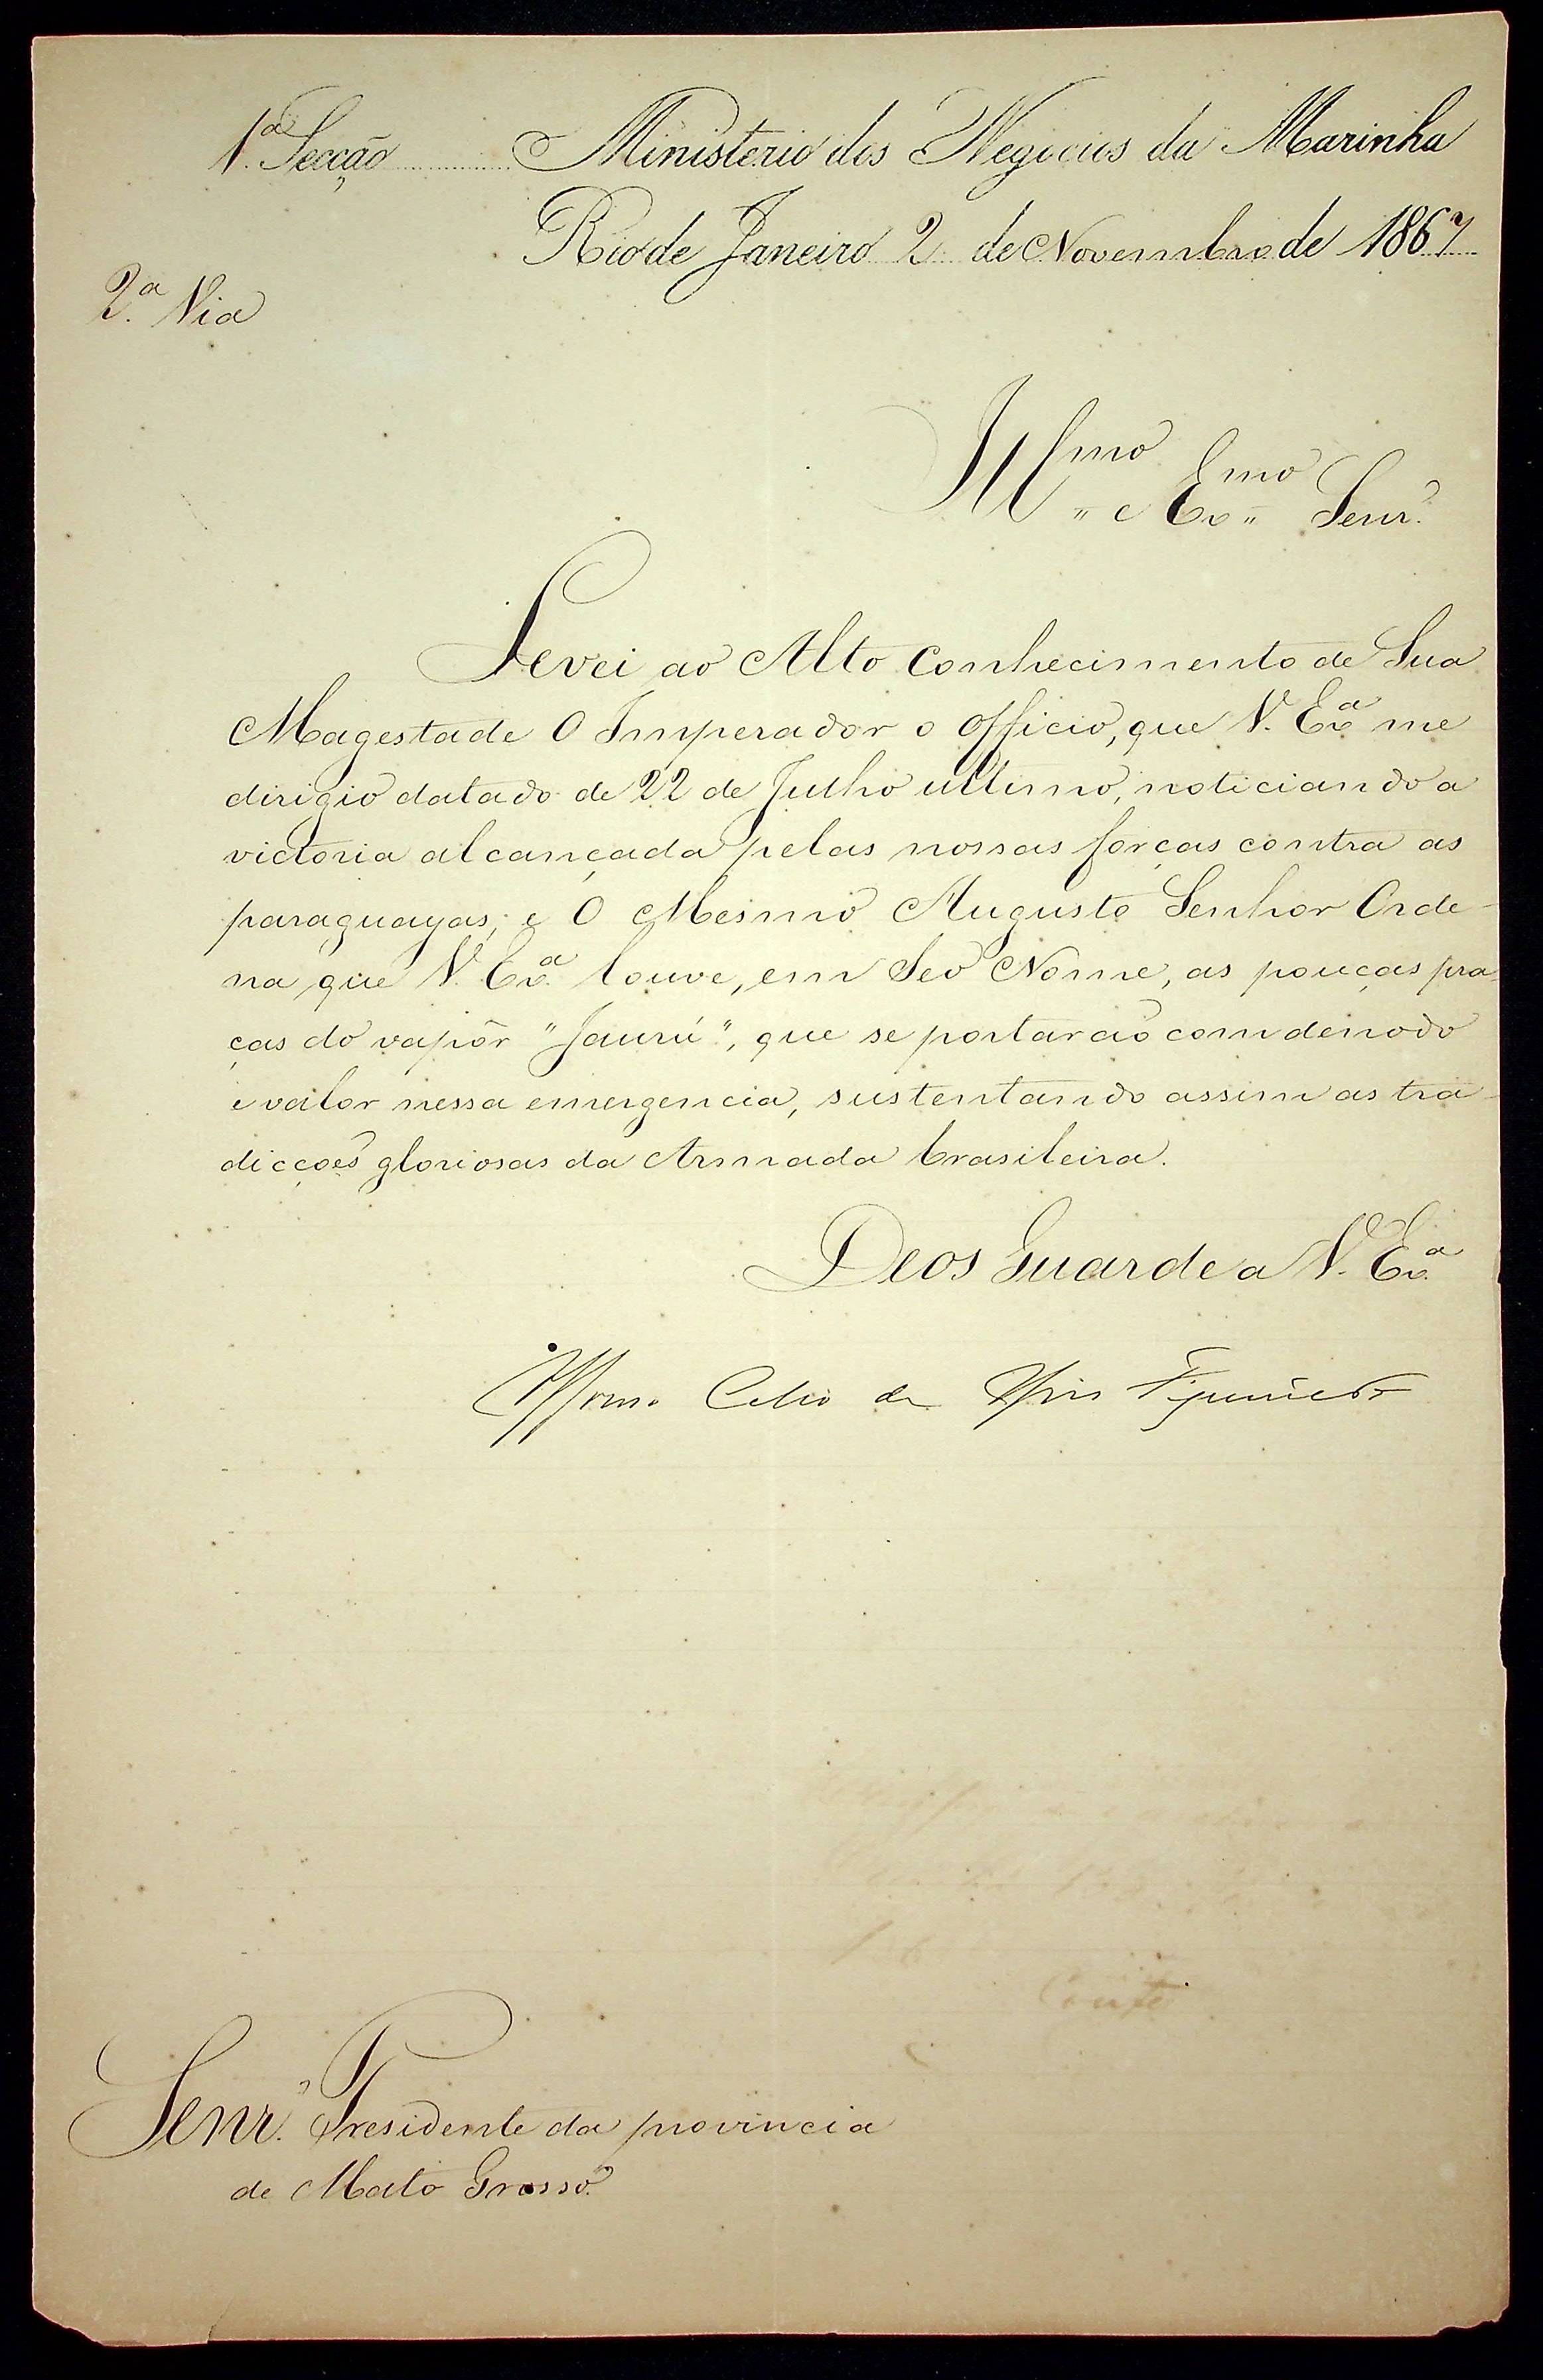 1.ª Secção Ministerio dos Negocios da Marinha
Rio de Janeiro 2 de Novembro de 1867
2.ª Via
Illmo e Exmo Senr.
Levei ao Alto Conhecimento de Sua
Magestade O Imperador o officio, que V. Exª me
dirigio datado de 22 de Julho ultimo, noticiando a
victoria alcançada pelas nossas forças contra as
paraguayas; e O Mesmo Augusto Senhor Orde-
na que V. Exª louve, em Seo Nome, as pouças pra-
ças do vapôr "Jaurú", que se portarão com denodo
e valor nessa emergencia, sustentando assim as tra-
dicções gloriosas da Armada brasileira.
Deos Guarde a V. Exª
Affonso Celso de Assis Figueiredo
Conte
Senr. Presidente da provincia
de Mato Grosso.